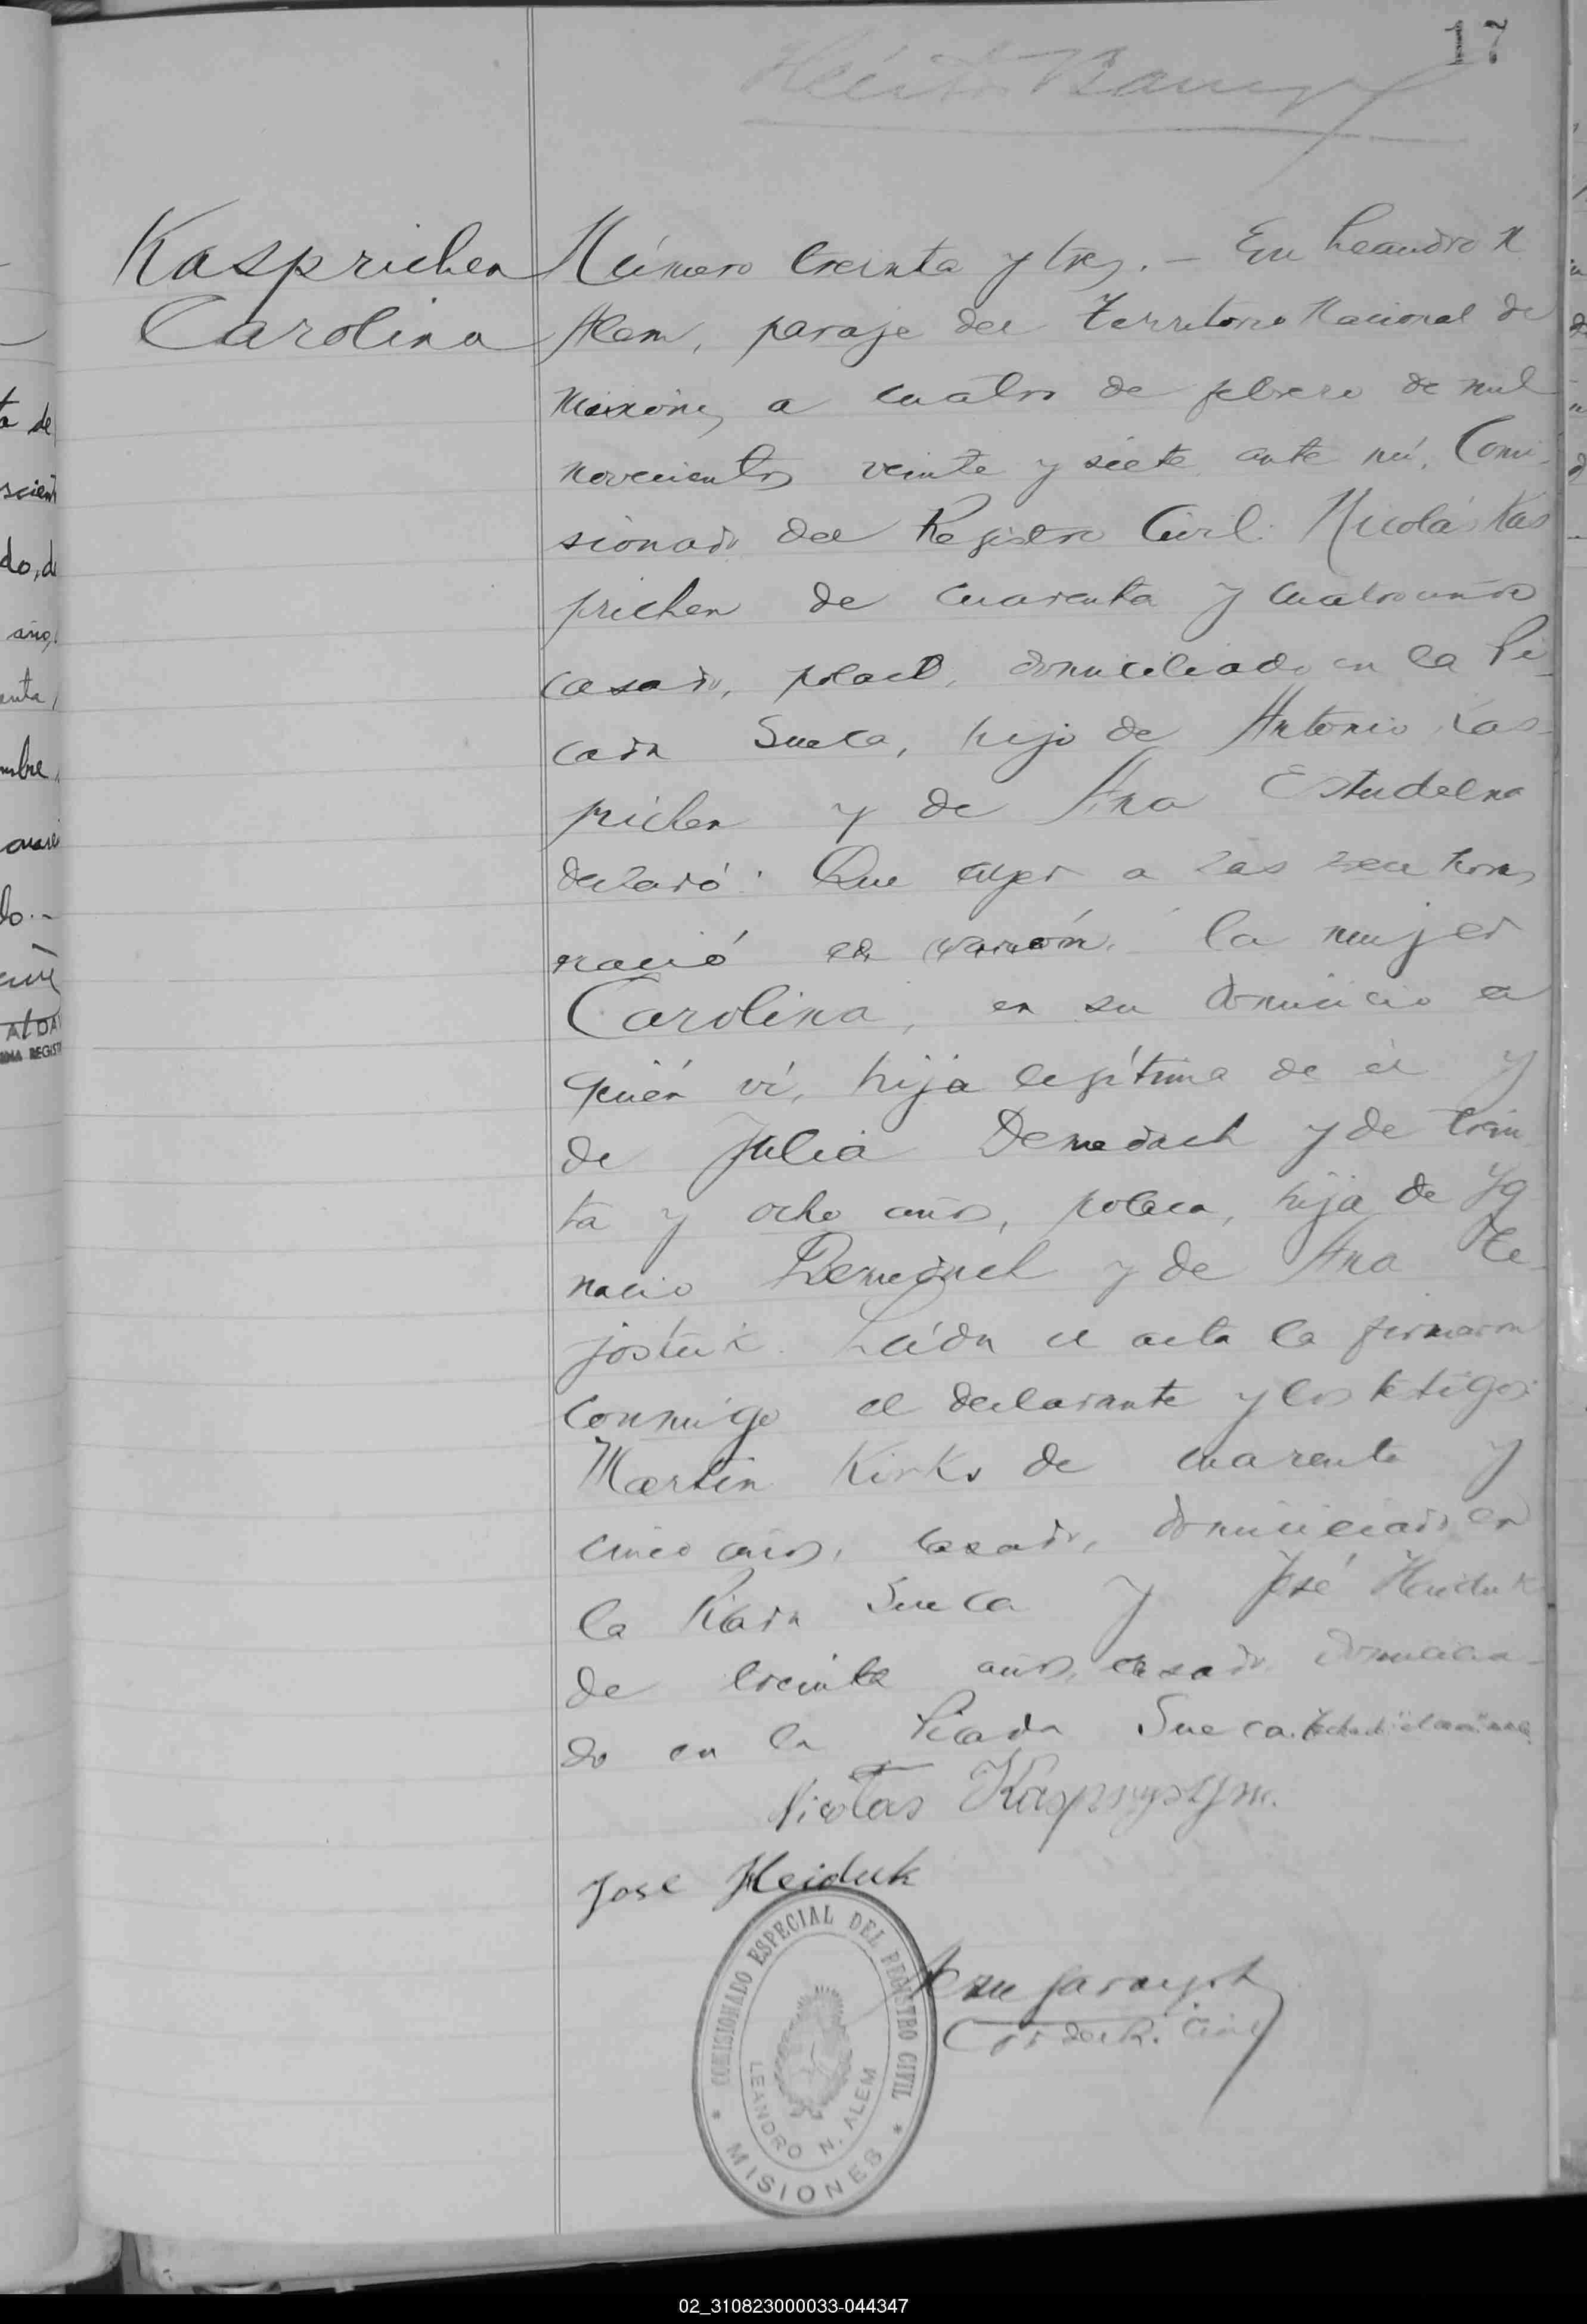 17
Kasprichen
Carolina
Número treinta y tres.- En Leandro N
Alem, paraje del Territorio Nacional de
Misiones, a cuatro de febrero de mil
novecientos veinte y siete ante mí, Comi-
sionado del Registro Civil: Nicolás Kas
prichen de cuarenta y cuatro años
casado, polaco, domiciliado en la Pi-
cada Sueca, hijo de Antonio Kas-
prichen y de Ana Estudelna
declaró: Que ayer a las horas
nació el varón, la mujer
Carolina, en su domicilio a
quién ví, hija legítima de él y
de Julia y de trein
ta y ocho años, polaca, hija de Yg
nacio y de Ana Te-
jostuk. Leída el acta la firmaron
conmigo el declarante y los testigos:
Martin Kirks de cuarenta y
cinco años, casado, domiciliado en
la Picada Sueca y José Heiduk
de treinta años, casado, domicilia-
do en la Picada Sueca.
Nicolas
Jose Heiduk
COMISIONADO ESPECIAL DEL REGISTRO CIVIL
LEANDRO N. ALEM
* MISIONES *
02_310823000033-044347